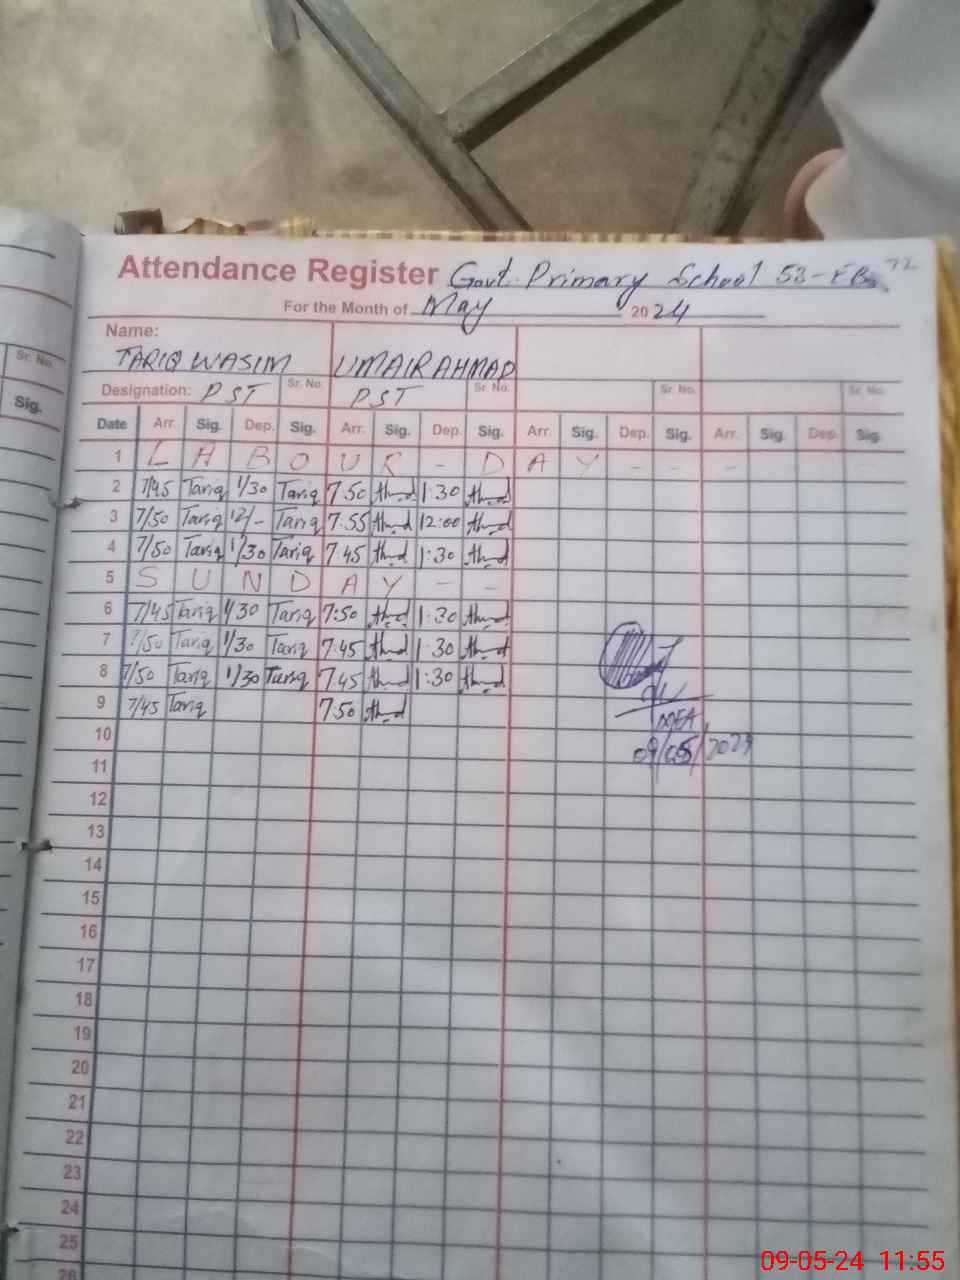 72
Attendance Register Govt. Primary School 53-EB
For the Month of May 2024
Name:
TARIQ WASIM UMAIR AHMAD
Sr. No. Sr. No. Sr. No. Sr. No.
Designation: PST PST
Sig.
Date Arr. Sig. Dep. Sig. Arr. Sig. Dep. Sig. Arr. Sig. Dep. Sig. Arr. Sig. Dep. Sig.
1 LABOUR - DAY - - - -
2 7/45 Tariq 1/30 Tariq 7:50 1:30
3 7/50 Tariq 12/- Tariq 7:55 12:00
4 7/50 Tariq 1/30 Tariq 7:45 1:30
5 SUNDAY - -
6 7/45 Tariq 1/30 Tariq 7:50 1:30
7 7/50 Tariq 1/30 Tariq 7:45 1:30
8 7/50 Tariq 1/30 Tariq 7:45 1:30
9 7/45 Tariq 7:50
MEA
10
09/05/2024
11
12
13
14
15
16
17
18
19
20
21
22
23
24
25
26
09-05-24 11:55